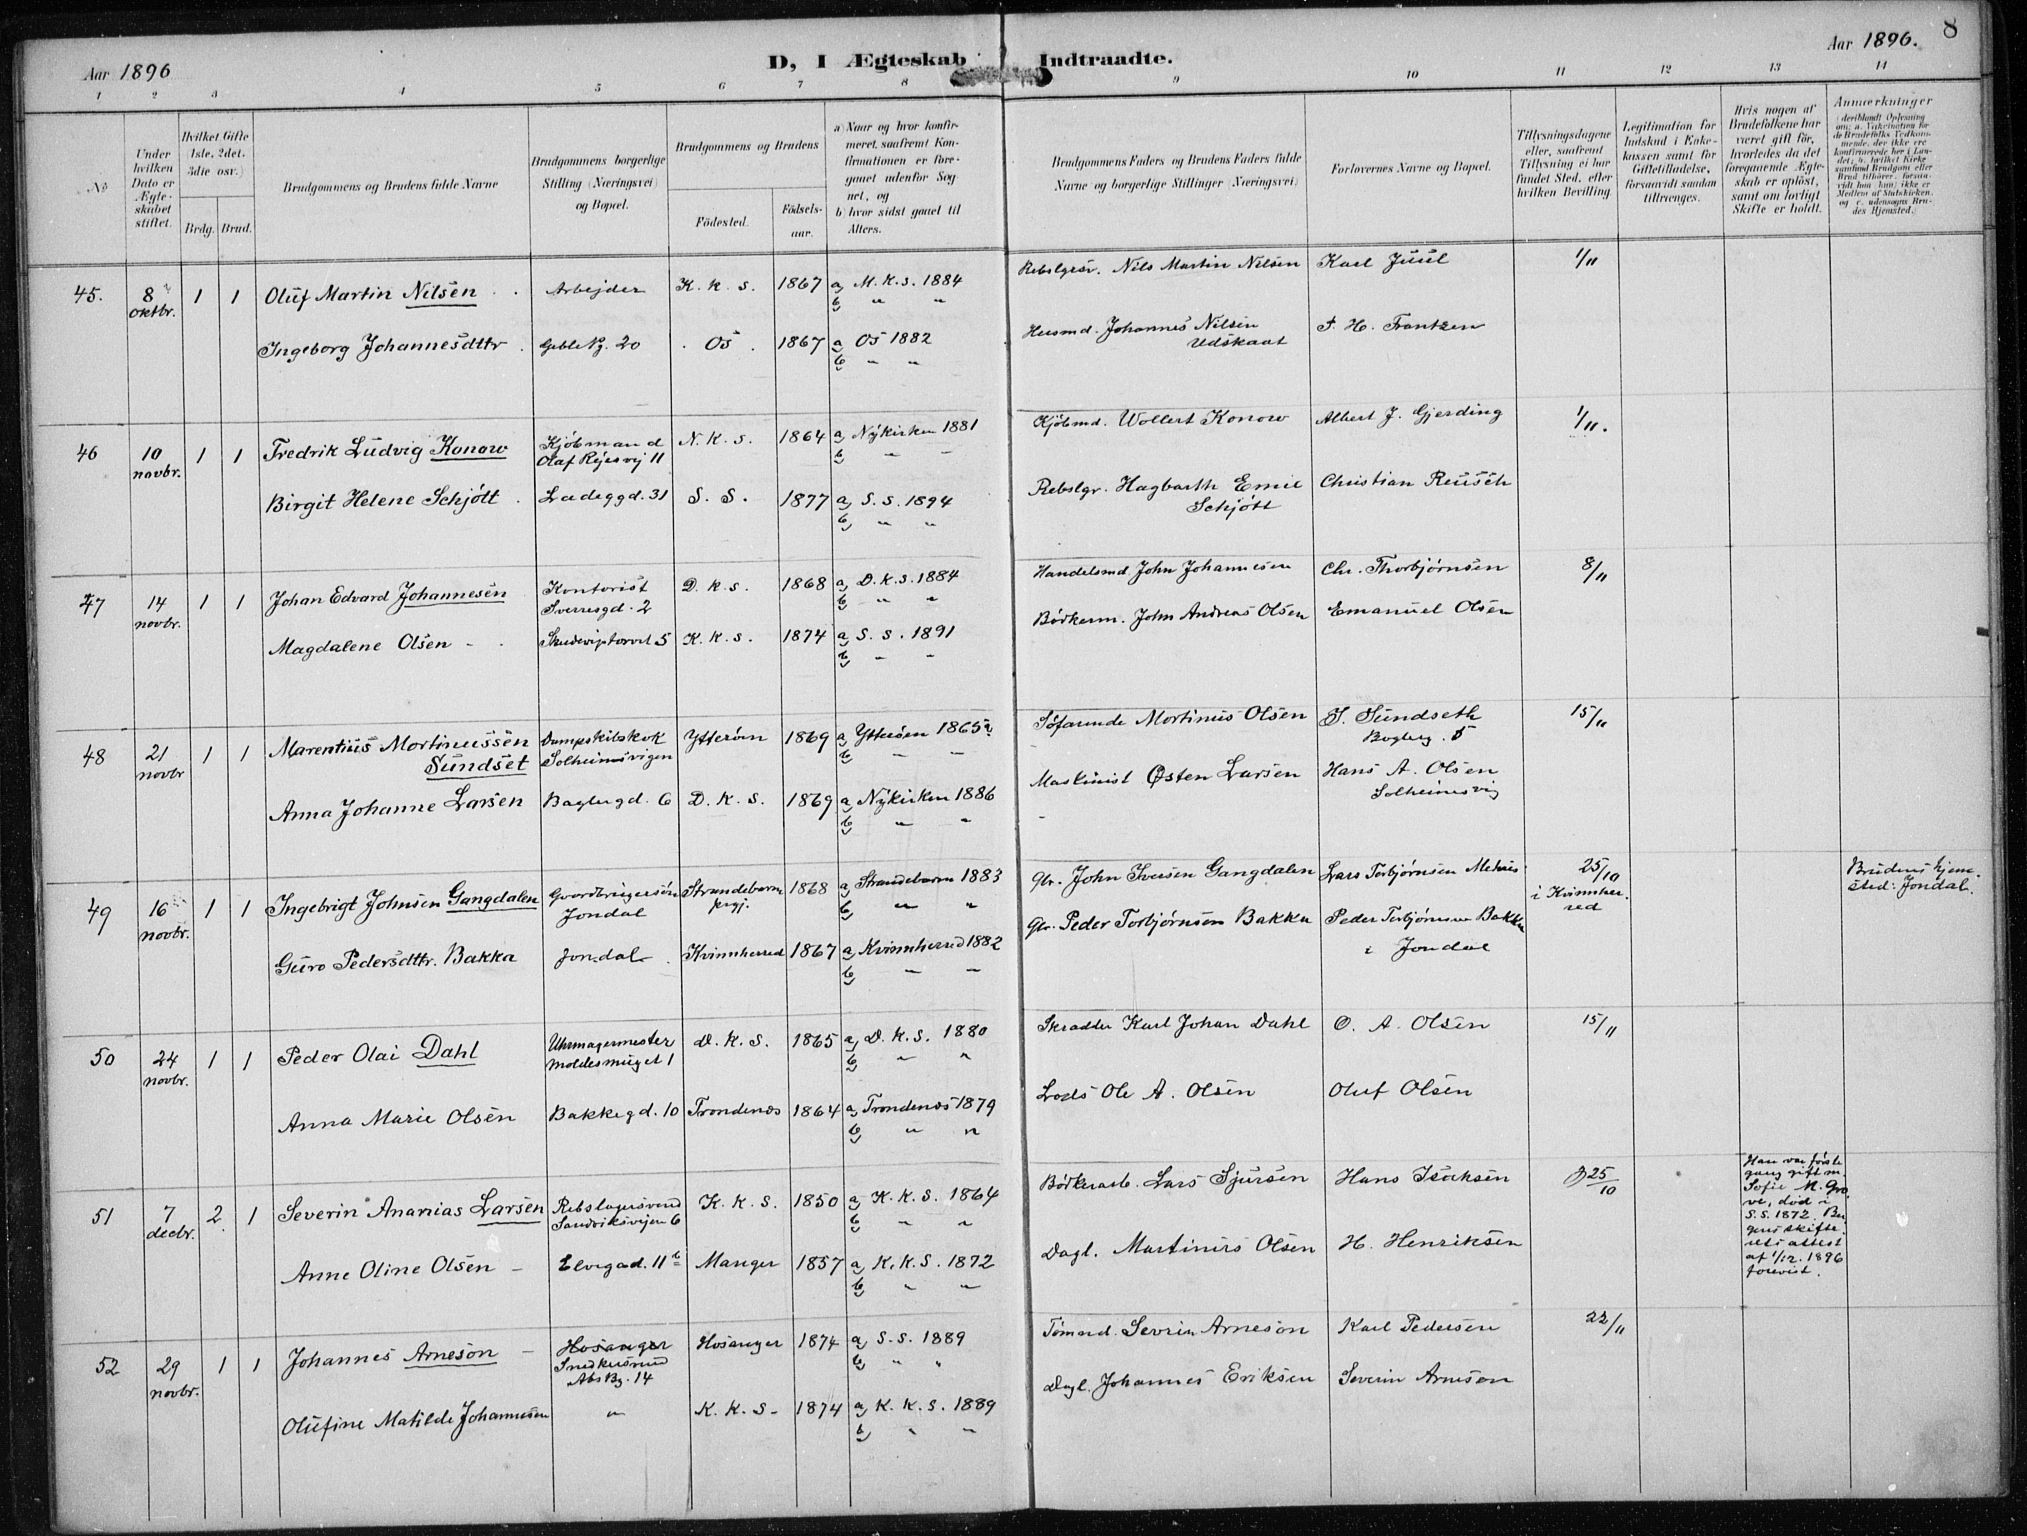 8
Aar 1896
D, I Ægteskab Indtraadte.
Aar 1896.
1 2 3 4 5 6 7 8 9 10 11 12 13 14
No
Under hvilken Dato er Ægte-skabet stiftet.
Hvilket Gifte 1ste, 2det, 3die osv.)
Brdg. Brud.
Brudgommens og Brudens fulde Navne
Brudgommens borgerlige Stilling (Næringsvei) og Bopæl.
Brudgommens og Brudens
Födested.
Födsels-aar.
a) Naar og hvor konfir-meret, saafremt Kon-firmationen er fore-gaaet udenfor Sog-net, og
b) hvor sidst gaaet til Alters.
Brudgommens Faders og Brudens Faders fulde Navne og borgerlige Stillinger (Næringsvei)
Forlovernes Navne og Bopæl.
Tillysningsdagene eller, saafremt Tillysning ei har fundet Sted, efter hvilken Bevilling
Legitimation for Indskud i Enke-kassen samt for Giftetilladelse, forsaavidt saadan tiltrænges.
Hvis nogen af Brudefolkene har været gift för, hvorledes da det foregaaende Ægte-skab er oplöst, samt om lovligt Skifte er holdt.
Anmærkninger
45. 8 oktbr. 1 1 Oluf Martin Nilsen Arbejder K. K. S. 1867 a) M.K.S. 1884 Rebslgrsv. Nils Martin Nilsen Karl Juul 1/11
b) " "
Ingeborg Johannesdttr . Os . 1867 a) Os 1882 Husmd. Johannes Nilsen Udskaat J. H. Frantzen
b) " "
46 10 novbr. 1 1 Fredrik Ludvig Konow Kjöbmand Olaf Ryesvej 11 N. K. S. 1864 a) Nykirken 1881 Kjöbmd. Wollert Konow Albert J. Gjerding 1/11.
b) " "
Birgit Helene Schjött Ladeggd. 31 S. S. 1877 a) S. S. 1894 Rebslgr. Hagbarth Emil Schjött Christian Reusch
b) " "
47 14 novbr. 1 1 Johan Edvard Johannesen Kontorist Sverresgd. 2 D. K. S. 1868 a) D. K. S. 1884 Handelsmd John Johannesen Chr. Thorbjörnsen 8/11
b) " "
Magdalene Olsen 5 K. K. S. 1874 a) S. S. 1891 Bödkerm. John Andreas Olsen Emanuel Olsen
b) " "
48 21 novbr 1 1 Marentius Mortinussen Sundset Dampskibskok Solheimsvigen Ytterøen 1869 a) Ytterøen 1865 Söfarende Mortinus Olsen J. Sundseth 5 15/11
b) " "
Anna Johanne Larsen Baglergd. 6 D. K. S. 1869 a) Nykirken 1886 Maskinist Østen Larsen Hans A. Olsen Solheimsvig
b) " "
49 16 novbr. 1 1 Ingebrigt Johnsen Gangdalen Gaardbrugersøn Jondal Strandebarm prgj. 1868 a) Strandebarm 1883 Gbr. John Iversen Gangdalen Lars Torbjörnsen 25/10 i Kvinnher-red Brudens hjem-sted: Jondal.
b) " "
Guro Pedersdttr. Bakka Jondal Kvinnherred 1867 a) Kvinnherred 1882 Gbr. Peder Torbjörnsen Bakka Peder Torbjörnsen Bakka i Jondal
b) " "
50 24 novbr. 1 1 Peder Olai Dahl Uhrmagermester Moldesmuget 1 D. K. S. 1865 a) D. K. S. 1880 Skrædder Karl Johan Dahl O. A. Olsen 15/11
b) " "
Anna Marie Olsen Bakkegd. 10 Trondenæs 1864 a) Trondenæs 1879 Lods Ole A. Olsen Oluf Olsen
b) " "
51 7 decbr. 2 1 Severin Ananias Larsen Rebslagersvend Sandviksvejen 6 K. K. S. 1850 a) K. K. S. 1864 Bödkerarb. Lars Sjursen Hans Isaksen 25/10 Han var første gang gift m. Sofie M. Gro-ve, død i S.S. 1872. Ber-gens skifte-rets attest af 1/12. 1896 forevist.
b) " "
Anne Oline Olsen - Elvegad. 11 Manger 1857 a) K. K. S. 1872 Dagl. Martinius Olsen H. Henriksen
b) " "
52 29 novbr. 1 1 Johannes Arneson - Hosanger Snedkersvend Hosanger 1874 a) S. S. 1889 Tömmd. Sevrin Arneson Karl Pedersen 22/11
b) " "
Olufine Matilde Johannesen " K. K. S. 1874 a) K. K. S. 1889 Dagl. Johannes Eriksen Severin Arneson
b) " "